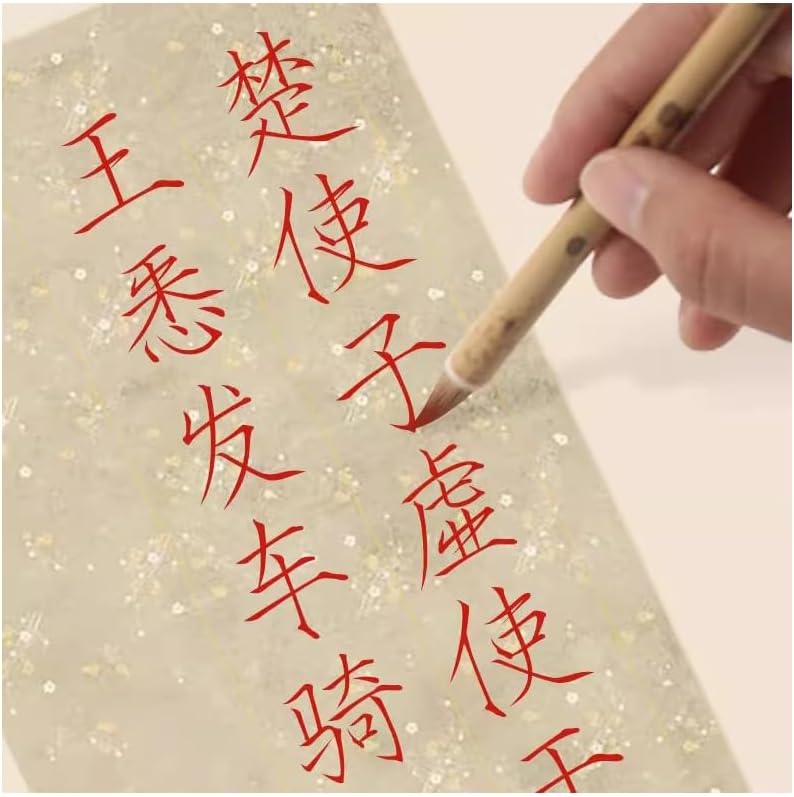 楚使子虚使于
王悉发车骑